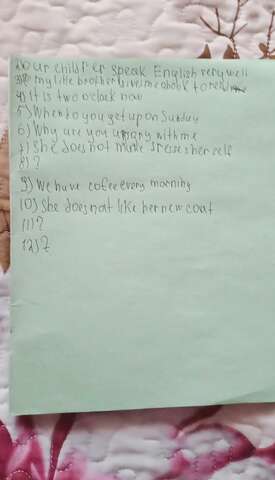 2) our child er speak English very well
3) my little brother gives me a book to read
4) It is two o'clock now
5) When do you get up on Sunday
6) Why are you angry with me
7) She does not make dresses her self
8) ?
9) We have cofee every morning
10) She does not like her new coat
11) ?
12) ?